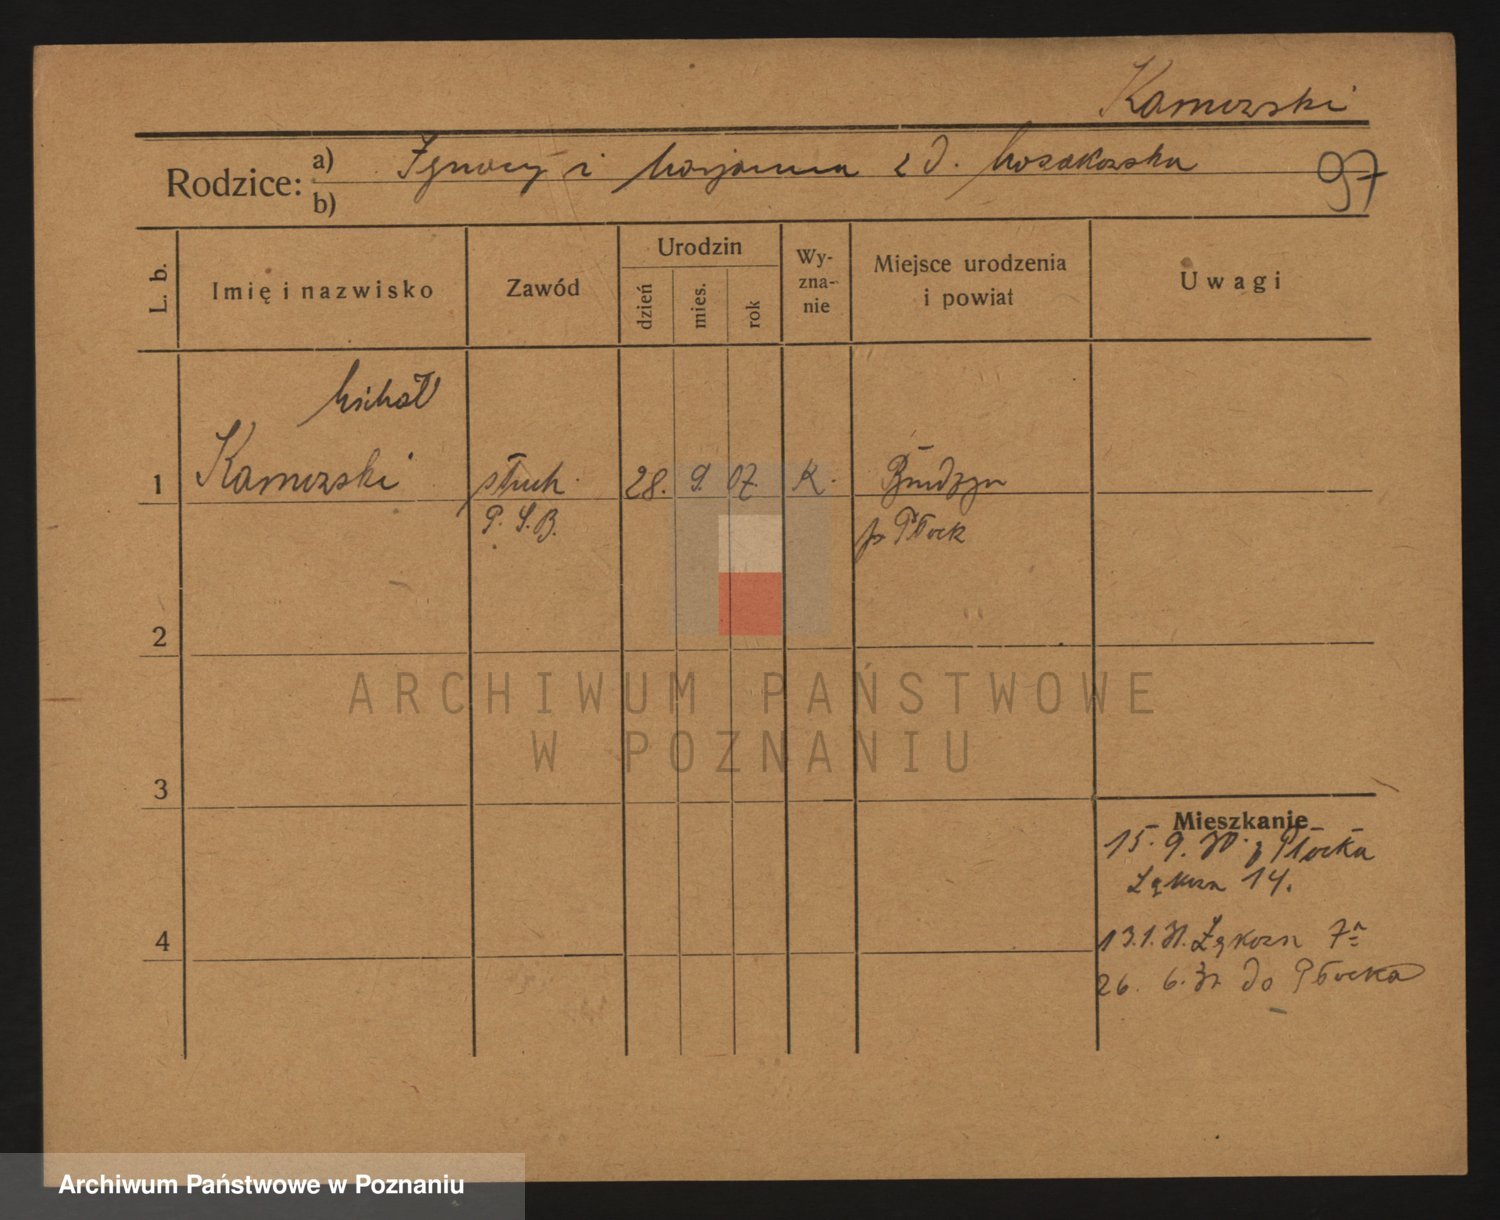 Kamerski
Rodzice: a) Ignacy i Marjanna z d. Mosakowska
b)
97
L. b.
Imię i nazwisko
Zawód
Urodzin
dzień
mies.
rok
Wy-
zna-
nie
Miejsce urodzenia
i powiat
Uwagi
Michał
1 Kamerski słuch. 28. 9. 07. K.
P. S. B.
p. Płock
2
3
4
Mieszkanie
15. 9. 30. z Płocka
Łąkowa 14.
13.1.31. Łąkowa 7a
26. 6. do Płocka
ARCHIWUM PAŃSTWOWE
W POZNANIU
Archiwum Państwowe w Poznaniu